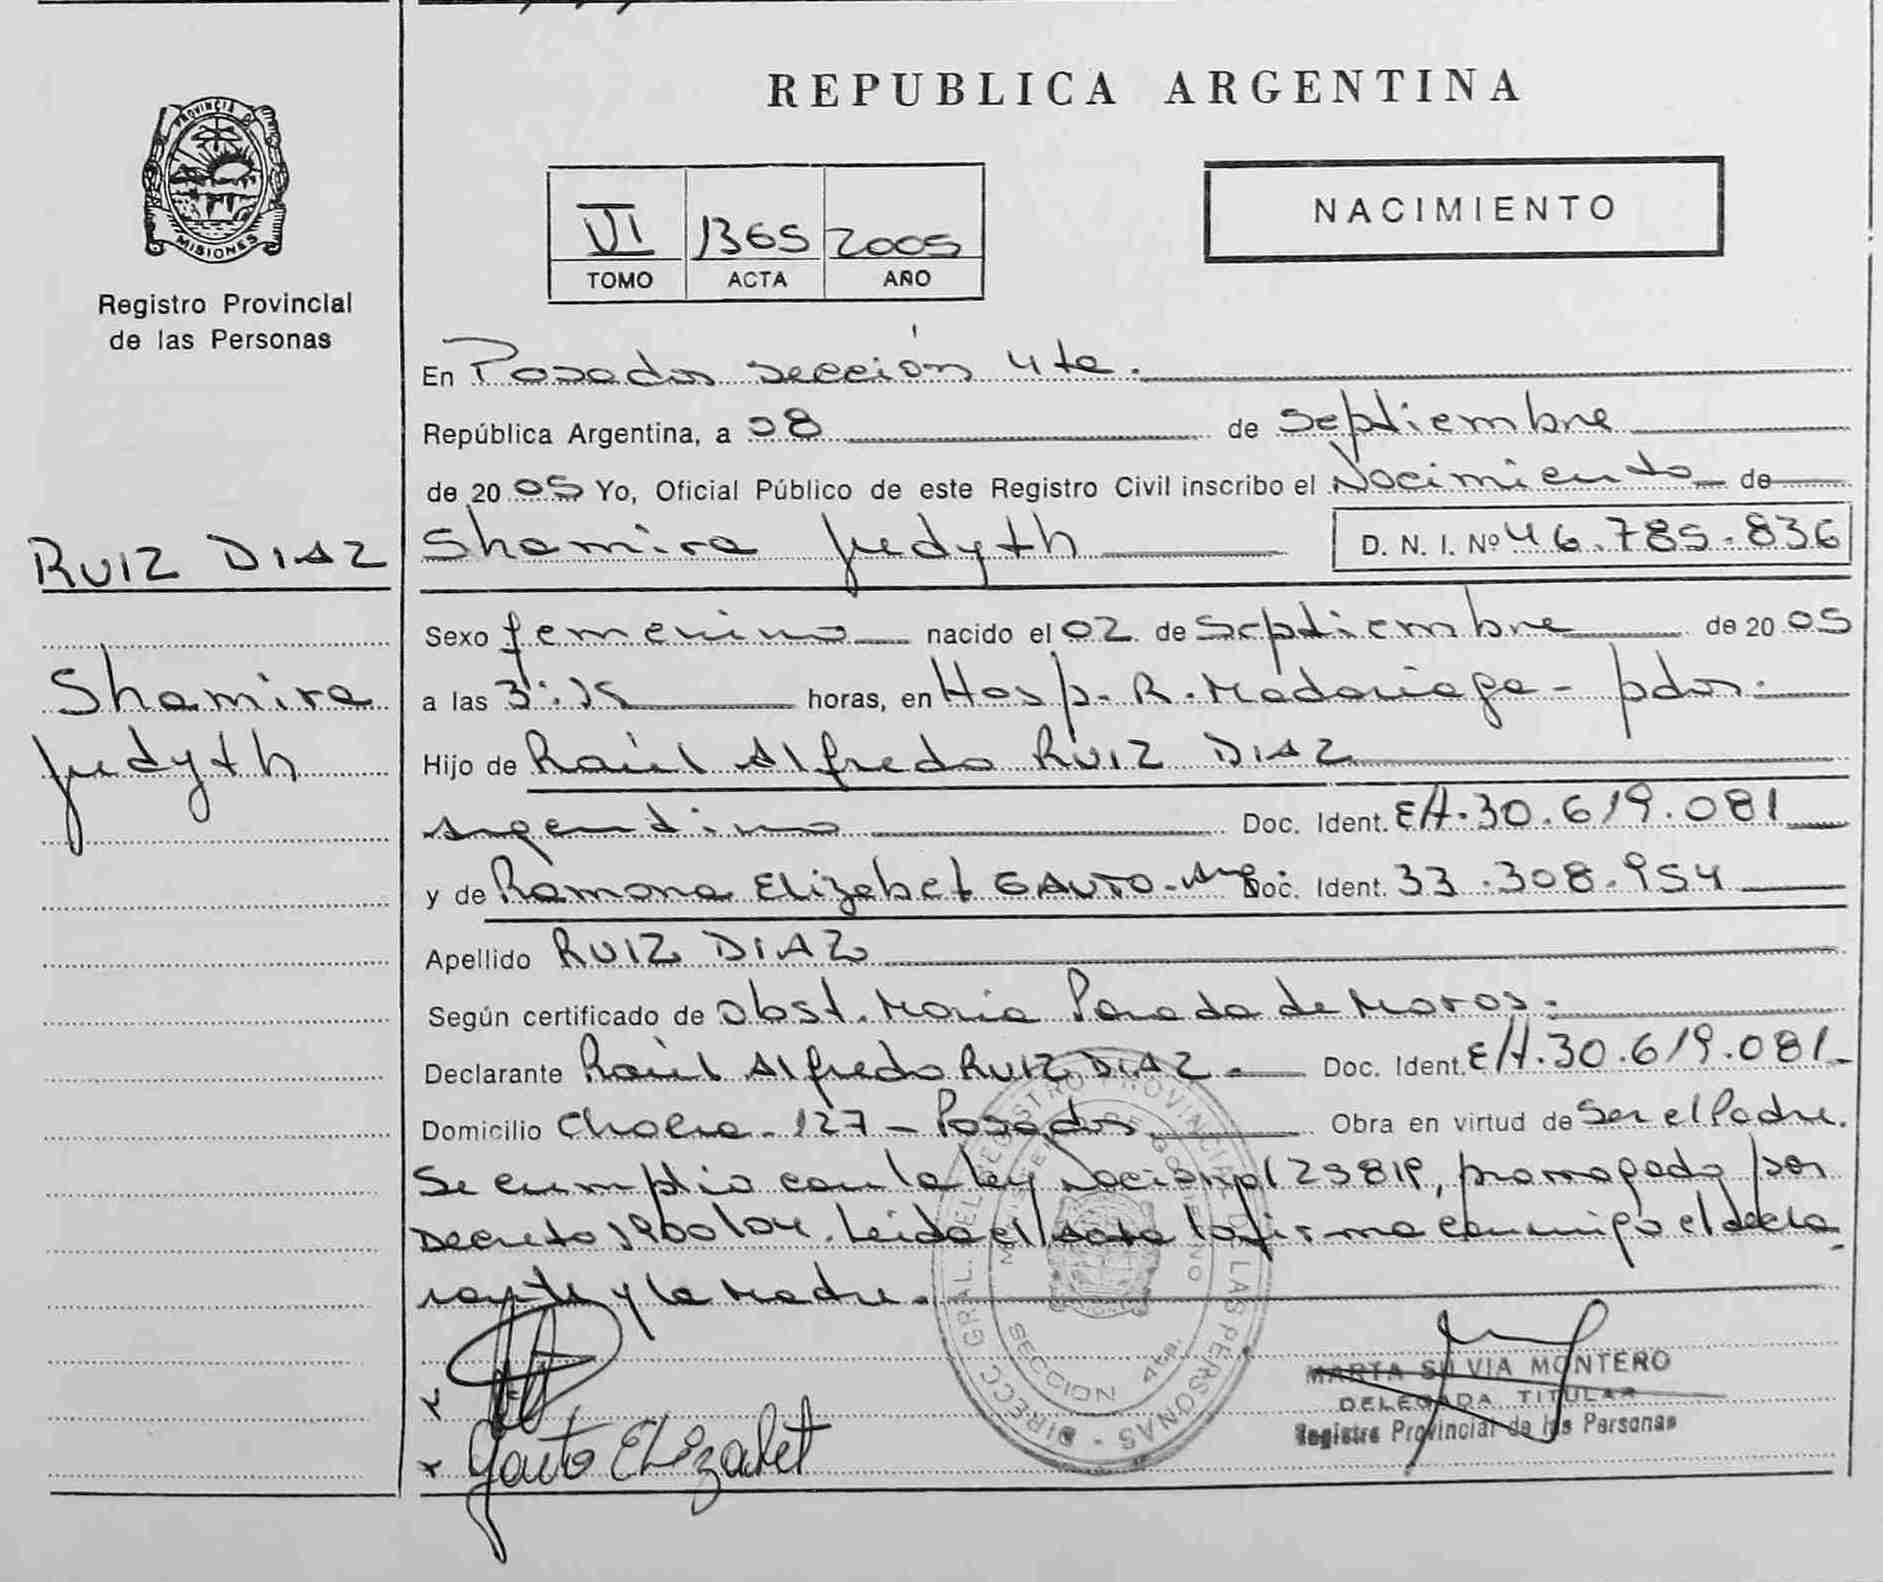 REPUBLICA ARGENTINA
PROVINCIA DE
MISIONES
Registro Provincial
de las Personas
VI 1365 2005
TOMO ACTA AÑO
NACIMIENTO
En Posadas sección 4ta.
República Argentina, a 08 de Septiembre
de 2005 Yo, Oficial Público de este Registro Civil inscribo el Nacimiento de
Shamira Judyth D. N. I. Nº 46.785.836
RUIZ DIAZ
Shamira
Judyth
Sexo femenino nacido el 02 de Septiembre de 2005
a las 3:15 horas, en Hosp. R. Madariaga - pdas.
Hijo de Raúl Alfredo RUIZ DIAZ
argentino Doc. Ident. EH. 30.619.081
y de Ramona Elizabet GAUTO - Arg. Doc. Ident. 33.308.954
Apellido RUIZ DIAZ
Según certificado de Obst. Maria Parada de Moros.
Declarante Raúl Alfredo RUIZ DIAZ - Doc. Ident. EH. 30.619.081
Domicilio 127 - Posadas Obra en virtud de Ser el Padre.
Se cumplio con la ley Nacional 23819, prorrogado por
Decreto 1900/04. Leida el Acta la firma conmigo el decla
rante y la Madre.
DIRECC. GRAL. DEL REGISTRO PROVINCIAL DE LAS PERSONAS
MINISTERIO DE GOBIERNO
SECCION 4ta.
Gauto Elizabet
MARTA SILVIA MONTERO
DELEGADA TITULAR
Registro Provincial de las Personas